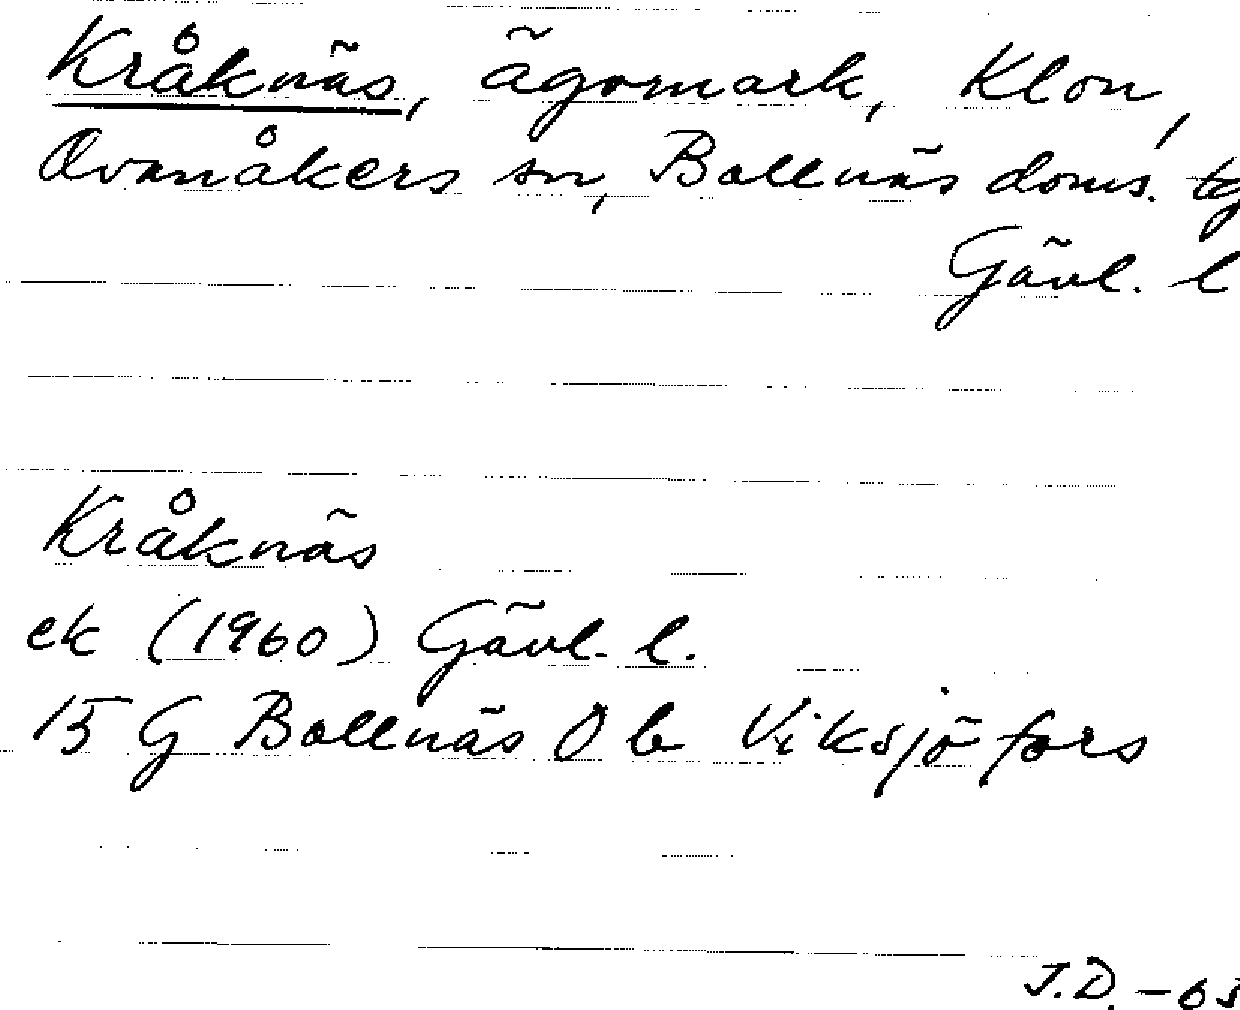 Kråknäs, ägomark, Klon,
Ovanåkers sn, Bollnäs doms. tg
Gävl. l
Kråknäs
ek (1960) Gävl. l.
15 G Bollnäs O b Viksjöfors
J.D. -65